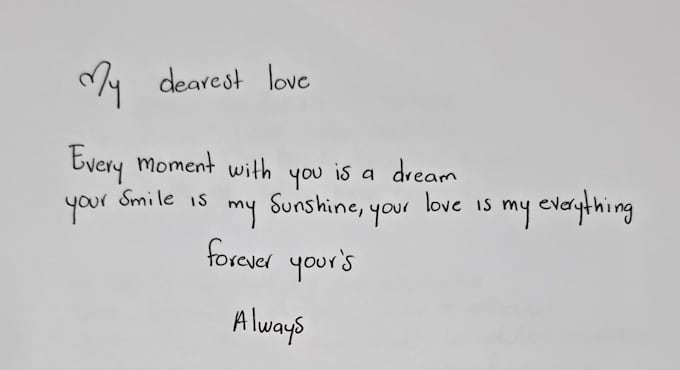 My dearest love
Every moment with you is a dream
your smile is my Sunshine, your love is my everything
forever your's
Always